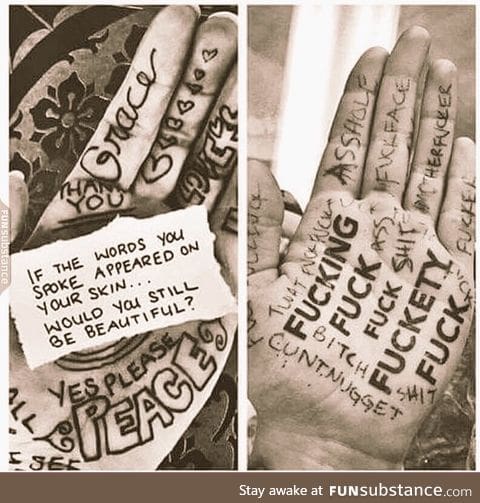 Grace
THANK
YOU
IF THE WORDS YOU
SPOKE APPEARED ON
YOUR SKIN...
WOULD YOU STILL
BE BEAUTIFUL?
YES PLEASE
PEACE
I SEE
ASSHOLE
FUCKFACE
MOTHERFUCKER
FUCKER
TWAT
ASS
SHIT
FUCKING
FUCK
FUCK
FUCKETY
FUCK
BITCH
CUNTNUGGET
SHIT
FUNsubstance
Stay awake at FUNsubstance.com